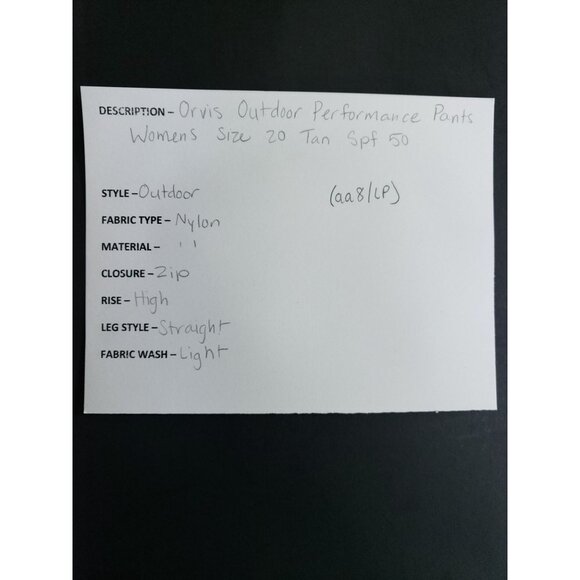 DESCRIPTION – Orvis Outdoor Performance Pants
Womens Size 20 Tan Spf 50
STYLE – Outdoor (aa8/LP)
FABRIC TYPE – Nylon
MATERIAL – ' '
CLOSURE – Zip
RISE – High
LEG STYLE – Straight
FABRIC WASH – Light